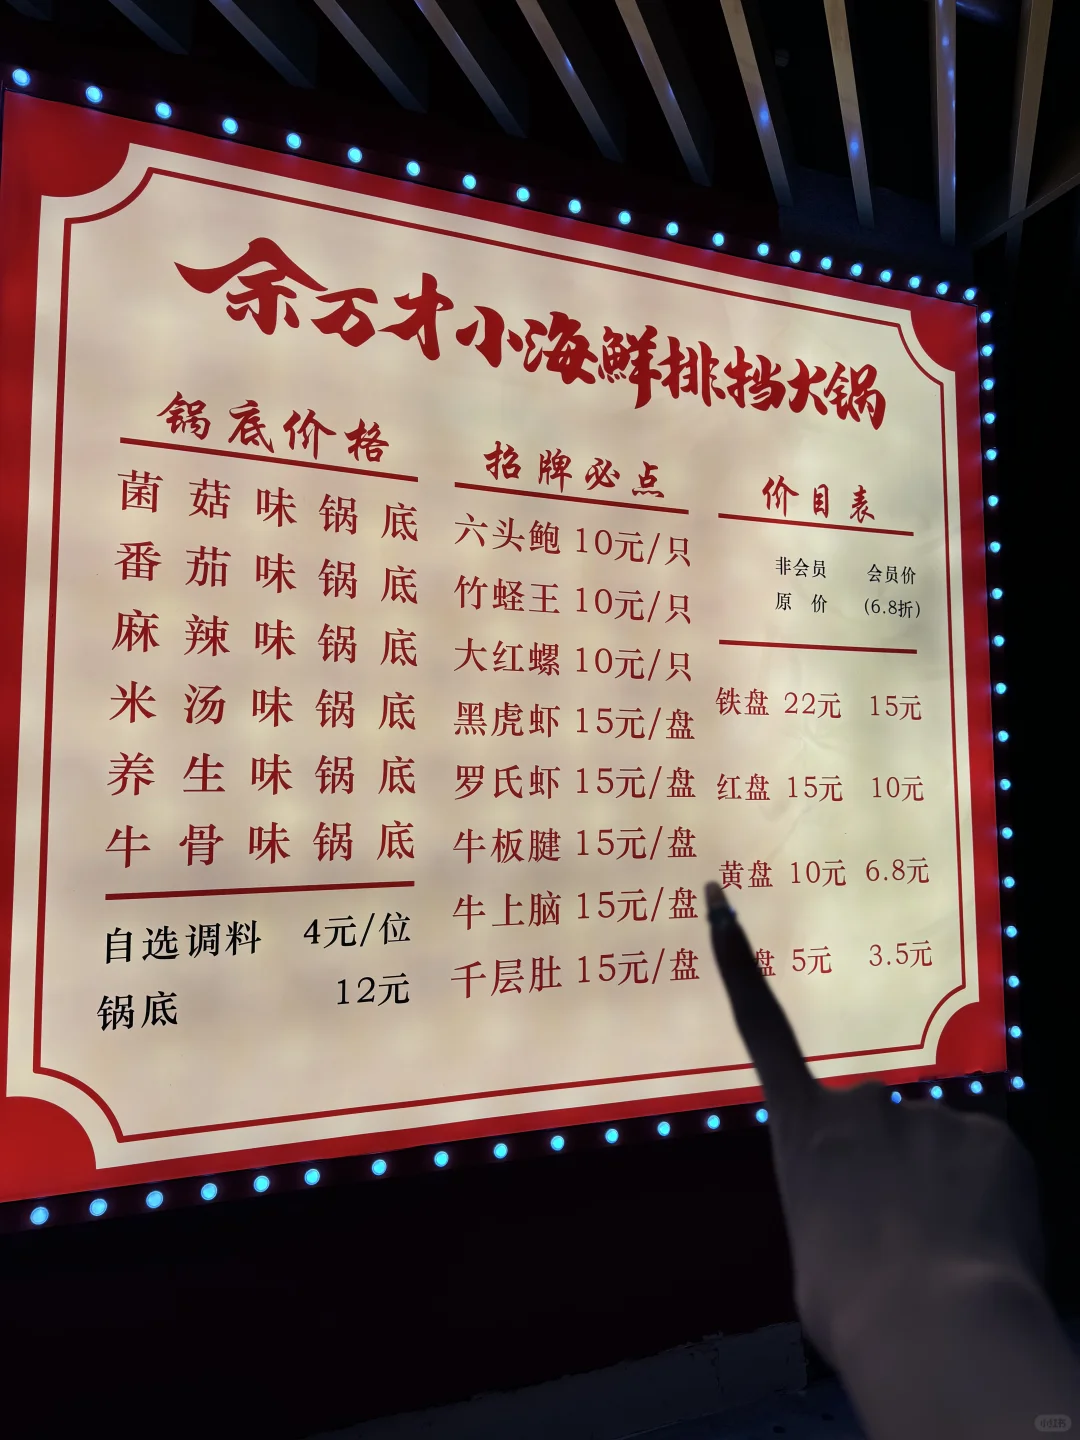 余万才小海鲜排挡火锅
锅底价格
菌菇味锅底
番茄味锅底
麻辣味锅底
米汤味锅底
养生味锅底
牛骨味锅底
自选调料 4元/位
锅底 12元
招牌必点
六头鲍 10元/只
竹蛏王 10元/只
大红螺 10元/只
黑虎虾 15元/盘
罗氏虾 15元/盘
牛板腱 15元/盘
牛上脑 15元/盘
千层肚 15元/盘
价目表
非会员 会员价
原价 (6.8折)
铁盘 22元 15元
红盘 15元 10元
黄盘 10元 6.8元
盘 5元 3.5元
小红书